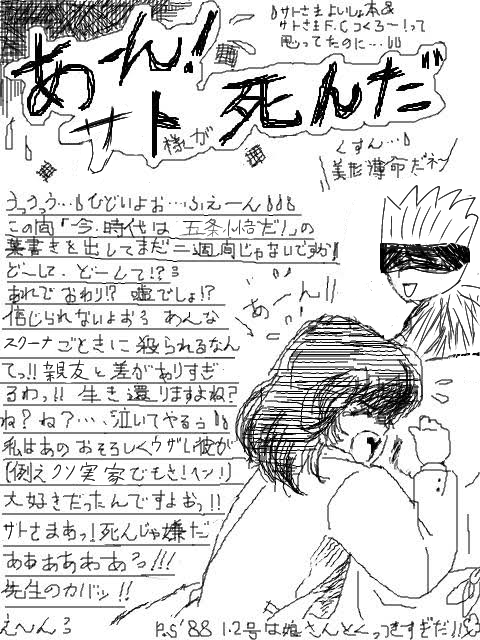 あーん!
サト様が死んだ
♪サトさまよいしょ本&
サトさまF.Cつくろ〜!って
思ってたのに…
くすん…
美形薄命だネ
うっうっう…ひどいよお…ふえーん
この間「今、時代は五条悟だ!」の
葉書きを出してまだ二週間じゃないですか!
どーして、どーして!?
あれでおわり!?嘘でしょ!?
信じられないよおっあんな
スクーナごときに殺られるなん
てっ!!親友と差がありすぎ
るわっ!!生き還りますよね?
ね?ね?…、泣いてやるぅ
私はあのおそろしくウザい彼が
(例えクソ実家でもさ!ヘン!)
大好きだったんですよおっ!!
サトさまあっ!死んじゃ嫌だ
ああああああっ!!!
先生のカバッ!!
え〜ん
あーん!!
P.S'88 1.2号は娘さんとくっつきすぎだ!!